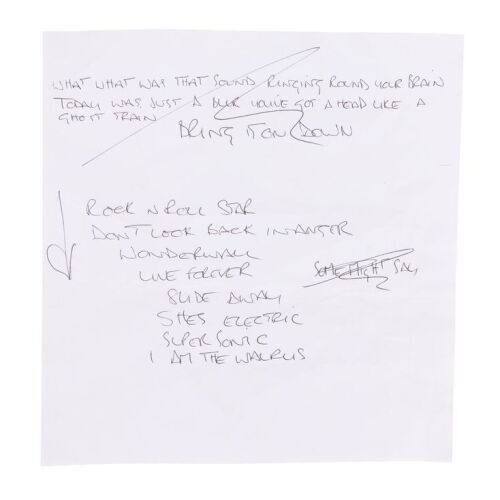 WHAT WHAT WAS THAT SOUND RINGING ROUND YOUR BRAIN
TODAY WAS JUST A BLUR YOU'VE GOT A HEAD LIKE A
GHOST TRAIN
BRING IT ON DOWN
ROCK N ROLL STAR
DONT LOOK BACK IN ANGER
WONDERWALL
LIVE FOREVER
SOME MIGHT SAY
SLIDE AWAY
SHES ELECTRIC
SUPERSONIC
I AM THE WALRUS